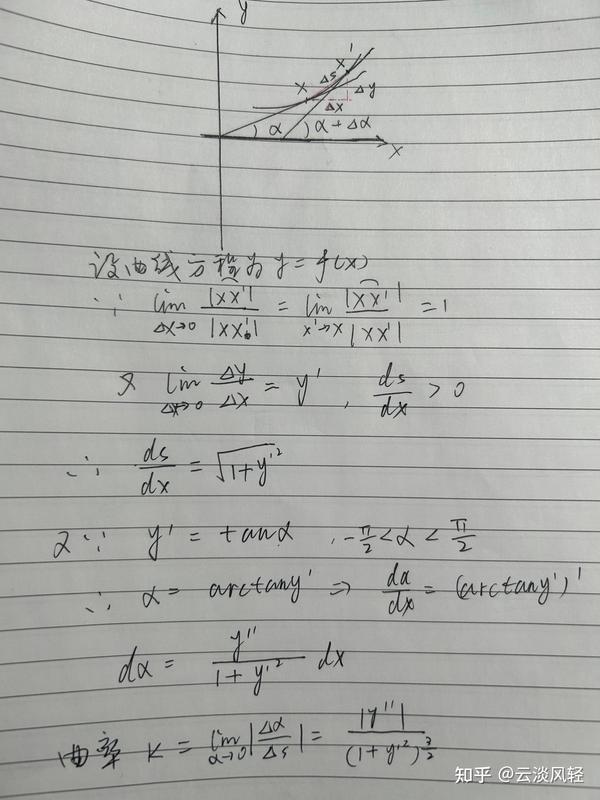 y
x' Δs
x Δy
Δx
α α+Δα
x
设曲线方程为 y=f(x)
∵ lim_{Δx→0} |⌒xx'|/|xx'| = lim_{x'→x} |⌒xx'|/|xx'| = 1
又 lim_{Δx→0} Δy/Δx = y' , ds/dx > 0
∴ ds/dx = √(1+y'²)
又∵ y' = tanα , -π/2 < α < π/2
∴ α = arctany' ⇒ dα/dx = (arctany')'
dα = y''/(1+y'²) dx
曲率 K = lim_{α→0} |Δα/Δs| = |y''|/(1+y'²)^{3/2}
知乎 @云淡风轻